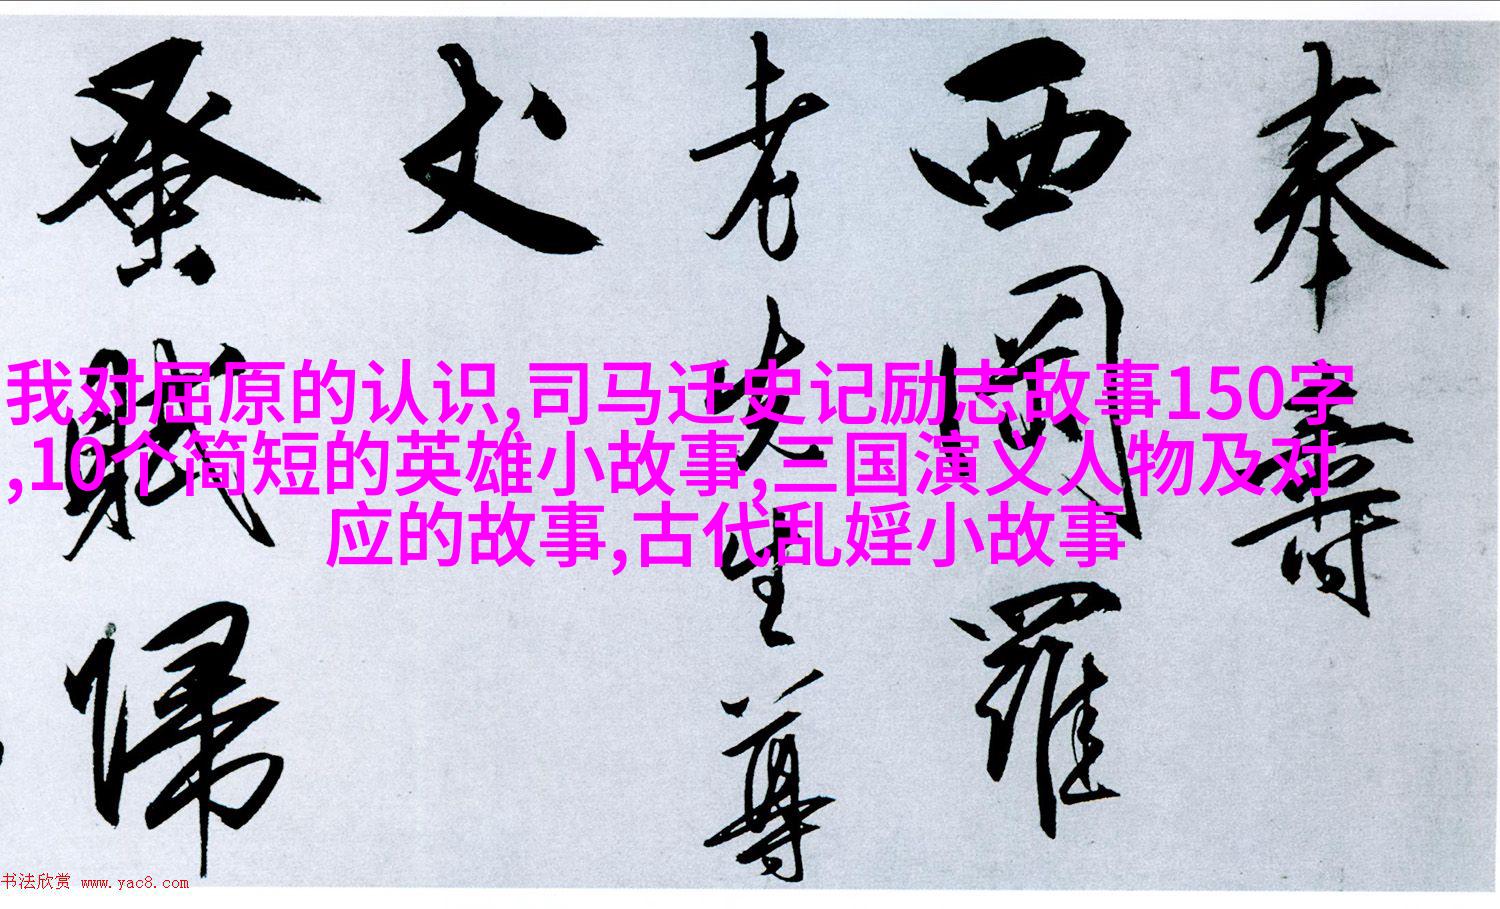 奉壽
西羅
老先生尊
丈
蚤賦歸
我对屈原的认识,司马迁史记励志故事150字
,10个简短的英雄小故事,三国演义人物及对
应的故事,古代乱婬小故事
书法欣赏 www.yac8.com